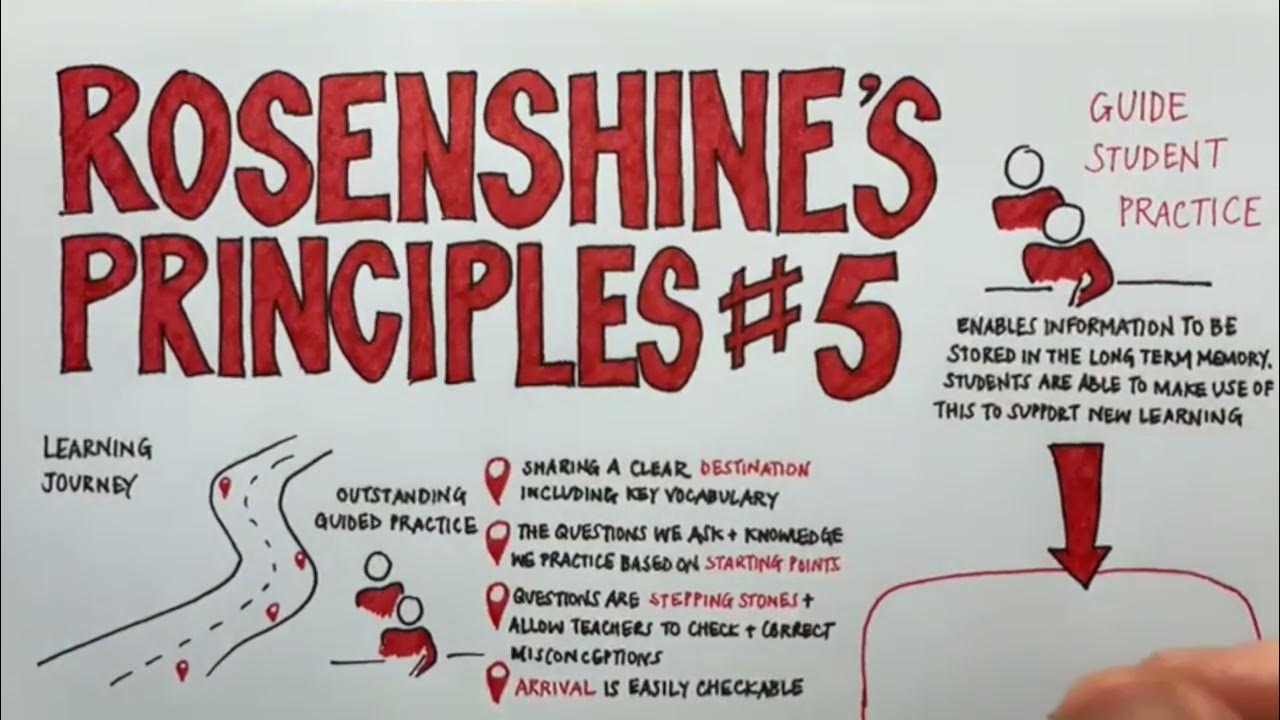 ROSENSHINE'S
PRINCIPLES #5
GUIDE
STUDENT
PRACTICE
ENABLES INFORMATION TO BE
STORED IN THE LONG TERM MEMORY.
STUDENTS ARE ABLE TO MAKE USE OF
THIS TO SUPPORT NEW LEARNING
LEARNING
JOURNEY
OUTSTANDING
GUIDED PRACTICE
SHARING A CLEAR DESTINATION
INCLUDING KEY VOCABULARY
THE QUESTIONS WE ASK + KNOWLEDGE
WE PRACTICE BASED ON STARTING POINTS
QUESTIONS ARE STEPPING STONES +
ALLOW TEACHERS TO CHECK + CORRECT
MISCONCEPTIONS
ARRIVAL IS EASILY CHECKABLE